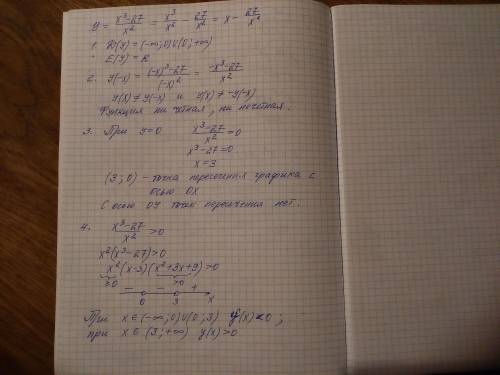 y = (x³-27)/x² = x³/x² - 27/x² = x - 27/x²
1. D(y) = (-∞; 0)∪(0; +∞)
E(y) = R
2. y(-x) = ((-x)³-27)/(-x)² = (-x³-27)/x²
y(x) ≠ y(-x) и y(x) ≠ -y(-x)
Функция ни чётная, ни нечётная.
3. При y=0 (x³-27)/x² = 0
x³-27=0
x=3
(3; 0) - точка пересечения графика с
осью OX
С осью OY точек пересечения нет.
4. (x³-27)/x² > 0
x²(x³-27)>0
x²(x-3)(x²+3x+9)>0
≥0 >0
- - +
0 3 x
При x ∈ (-∞; 0)∪(0; 3) y(x)<0;
при x ∈ (3; +∞) y(x)>0